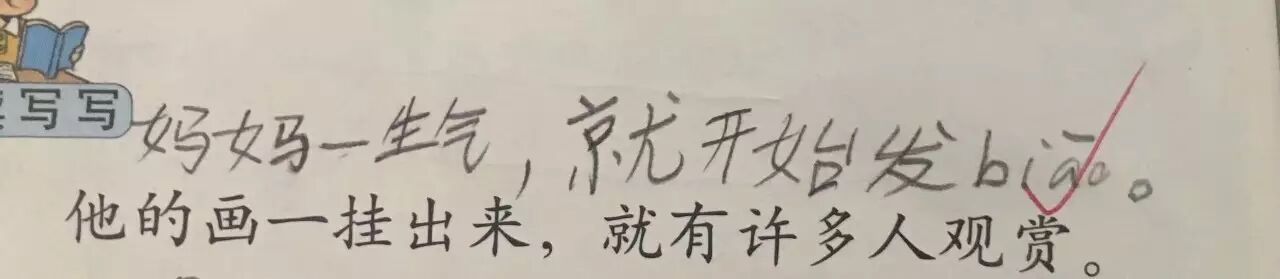 写写
妈妈一生气，就开始发biāo。
他的画一挂出来，就有许多人观赏。